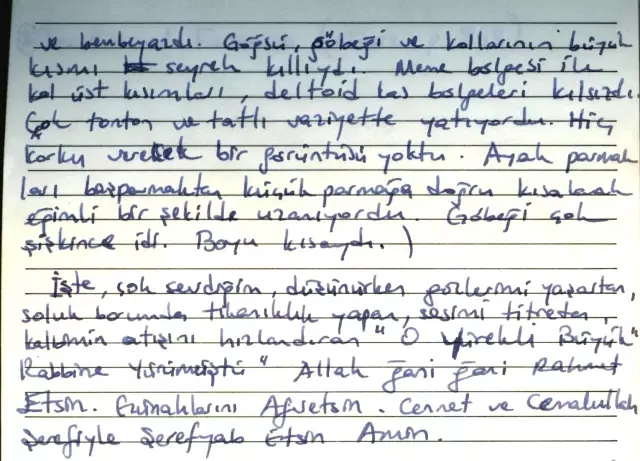 ve bembeyazdı. Göğsü, göbeği ve kollarının büyük
kısmı seyrek kıllıydı. Meme bölgesi ile
kol üst kısımları, deltoid kas bölgeleri kılsızdı.
Çok tonton ve tatlı vaziyette yatıyordu. Hiç
korku verecek bir görüntüsü yoktu. Ayak parmak
ları başparmaktan küçük parmağa doğru kısalarak
eğimli bir şekilde uzanıyordu. Göbeği çok
şişkince idi. Boyu kısaydı. )
İşte, çok sevdiğim, düşünürken gözlerimi yaşartan,
soluk borumda tıkanıklık yapan, sesimi titreten,
kalbimin atışını hızlandıran "O yürekli Büyük"
Rabbine Yürümüştü" Allah gani gani Rahmet
Etsin. Günahlarını Affetsin. Cennet ve Cemalullah
Şerefiyle Şerefyab Etsin Amin.